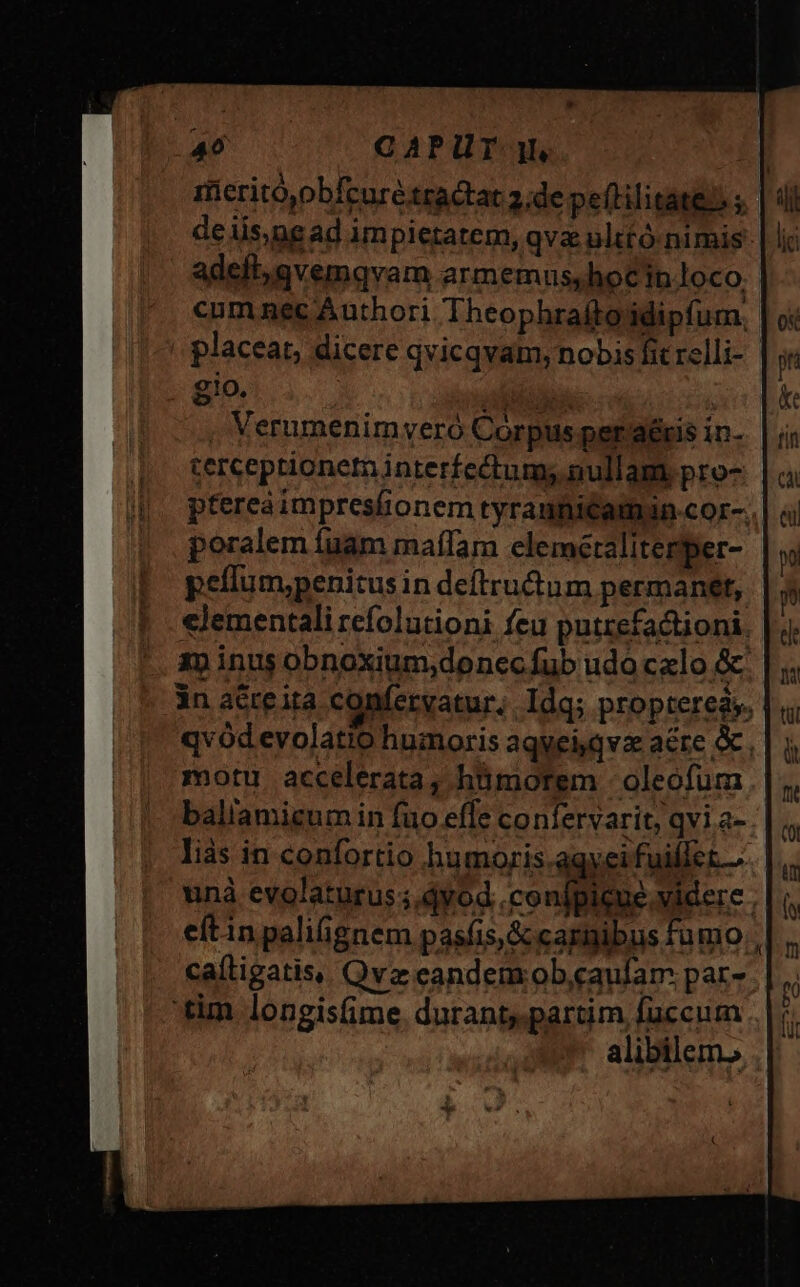 40 CAPUT II.
meritò,obſcurè tractat 2;de peſtilitate.. ;
de iis,ne ad impietatem, qvæ ultrò nimis
adeſt, qvemqvam armemus, hoc in loco,
cum nec Authori Theophraſto idipſum,
placeat, dicere qvicqvam, nobis ſit relli-
gio.
Verumenimverò Corpus per aëris in-
terceptionem interfectum, nullam pro-
ptereà impresſionem tyrannicam in cor-
poralem ſuam maſſam elemẽtaliter per-
peſſum,penitus in deſtructum permanet,
elementali reſolutioni ſeu putrefactioni
minus obnoxium,donec ſub udo cælo &
in aëre ita conſervatur. Idq; proptereà,
qvòd evolatio humoris aqvei,qvæ aëre &
motu accelerata, humorem oleoſum
balſamicum in ſuo eſſe conſervarit, qvi a-
liàs in conſortio humoris aqvei fuiſſet..
unà evolaturus; qvod conſpicuè videre
eſt in paliſignem pasſis, & carnibus fumo
caſtigatis, Qvæ eandem ob cauſam par-
tim longisſime durant, partim ſuccum
alibilem,